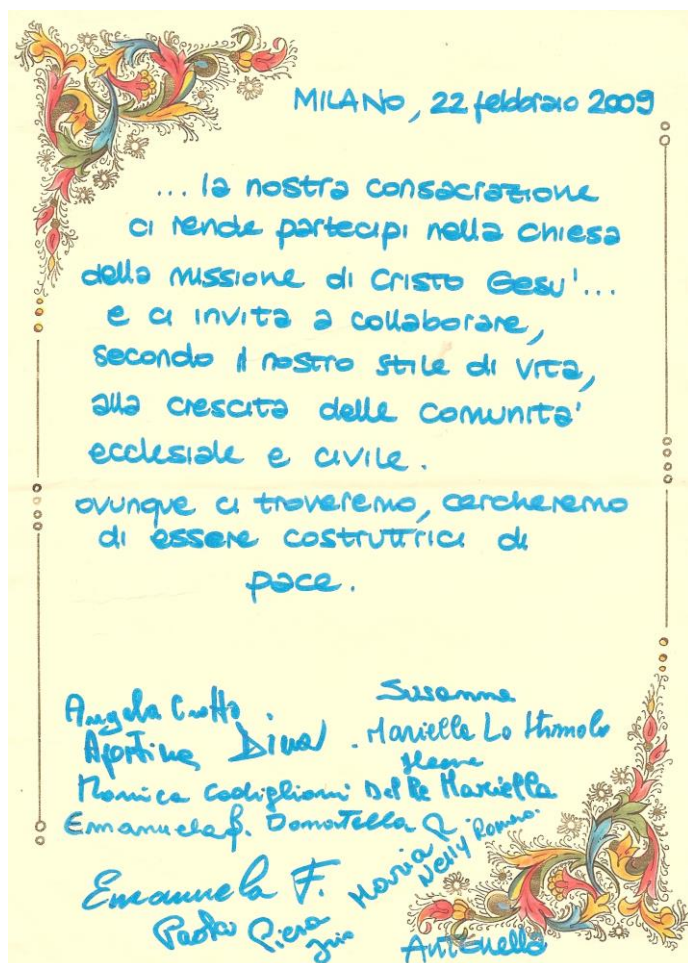 MILANO, 22 febbraio 2009
... la nostra consacrazione
ci rende partecipi nella chiesa
della missione di Cristo Gesu'...
e ci invita a collaborare,
secondo il nostro stile di vita,
alla crescita delle comunita'
ecclesiale e civile.
ovunque ci troveremo, cercheremo
di essere costruttrici di
pace.
Susanna
Angela
Agostina Dina Mariella Lo
Monica Codiglioni Del Re Mariella
Emanuela Donatella R.
Maria
Nelly Romero.
Emanuela F.
Paola Piera
Antonella